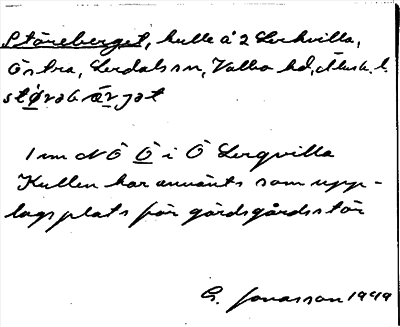 Störeberget, kulle å 2 Lerkvilla,
Östra, Lerdals sn, Valbo hd, Älvsb. l.
stø̱rabæ̱rjat
1 mm NÖ Ö i Ö Lerqvilla
Kullen har använts som upp-
lagsplats för gärdsgårdsstör
G. Jonasson 1949